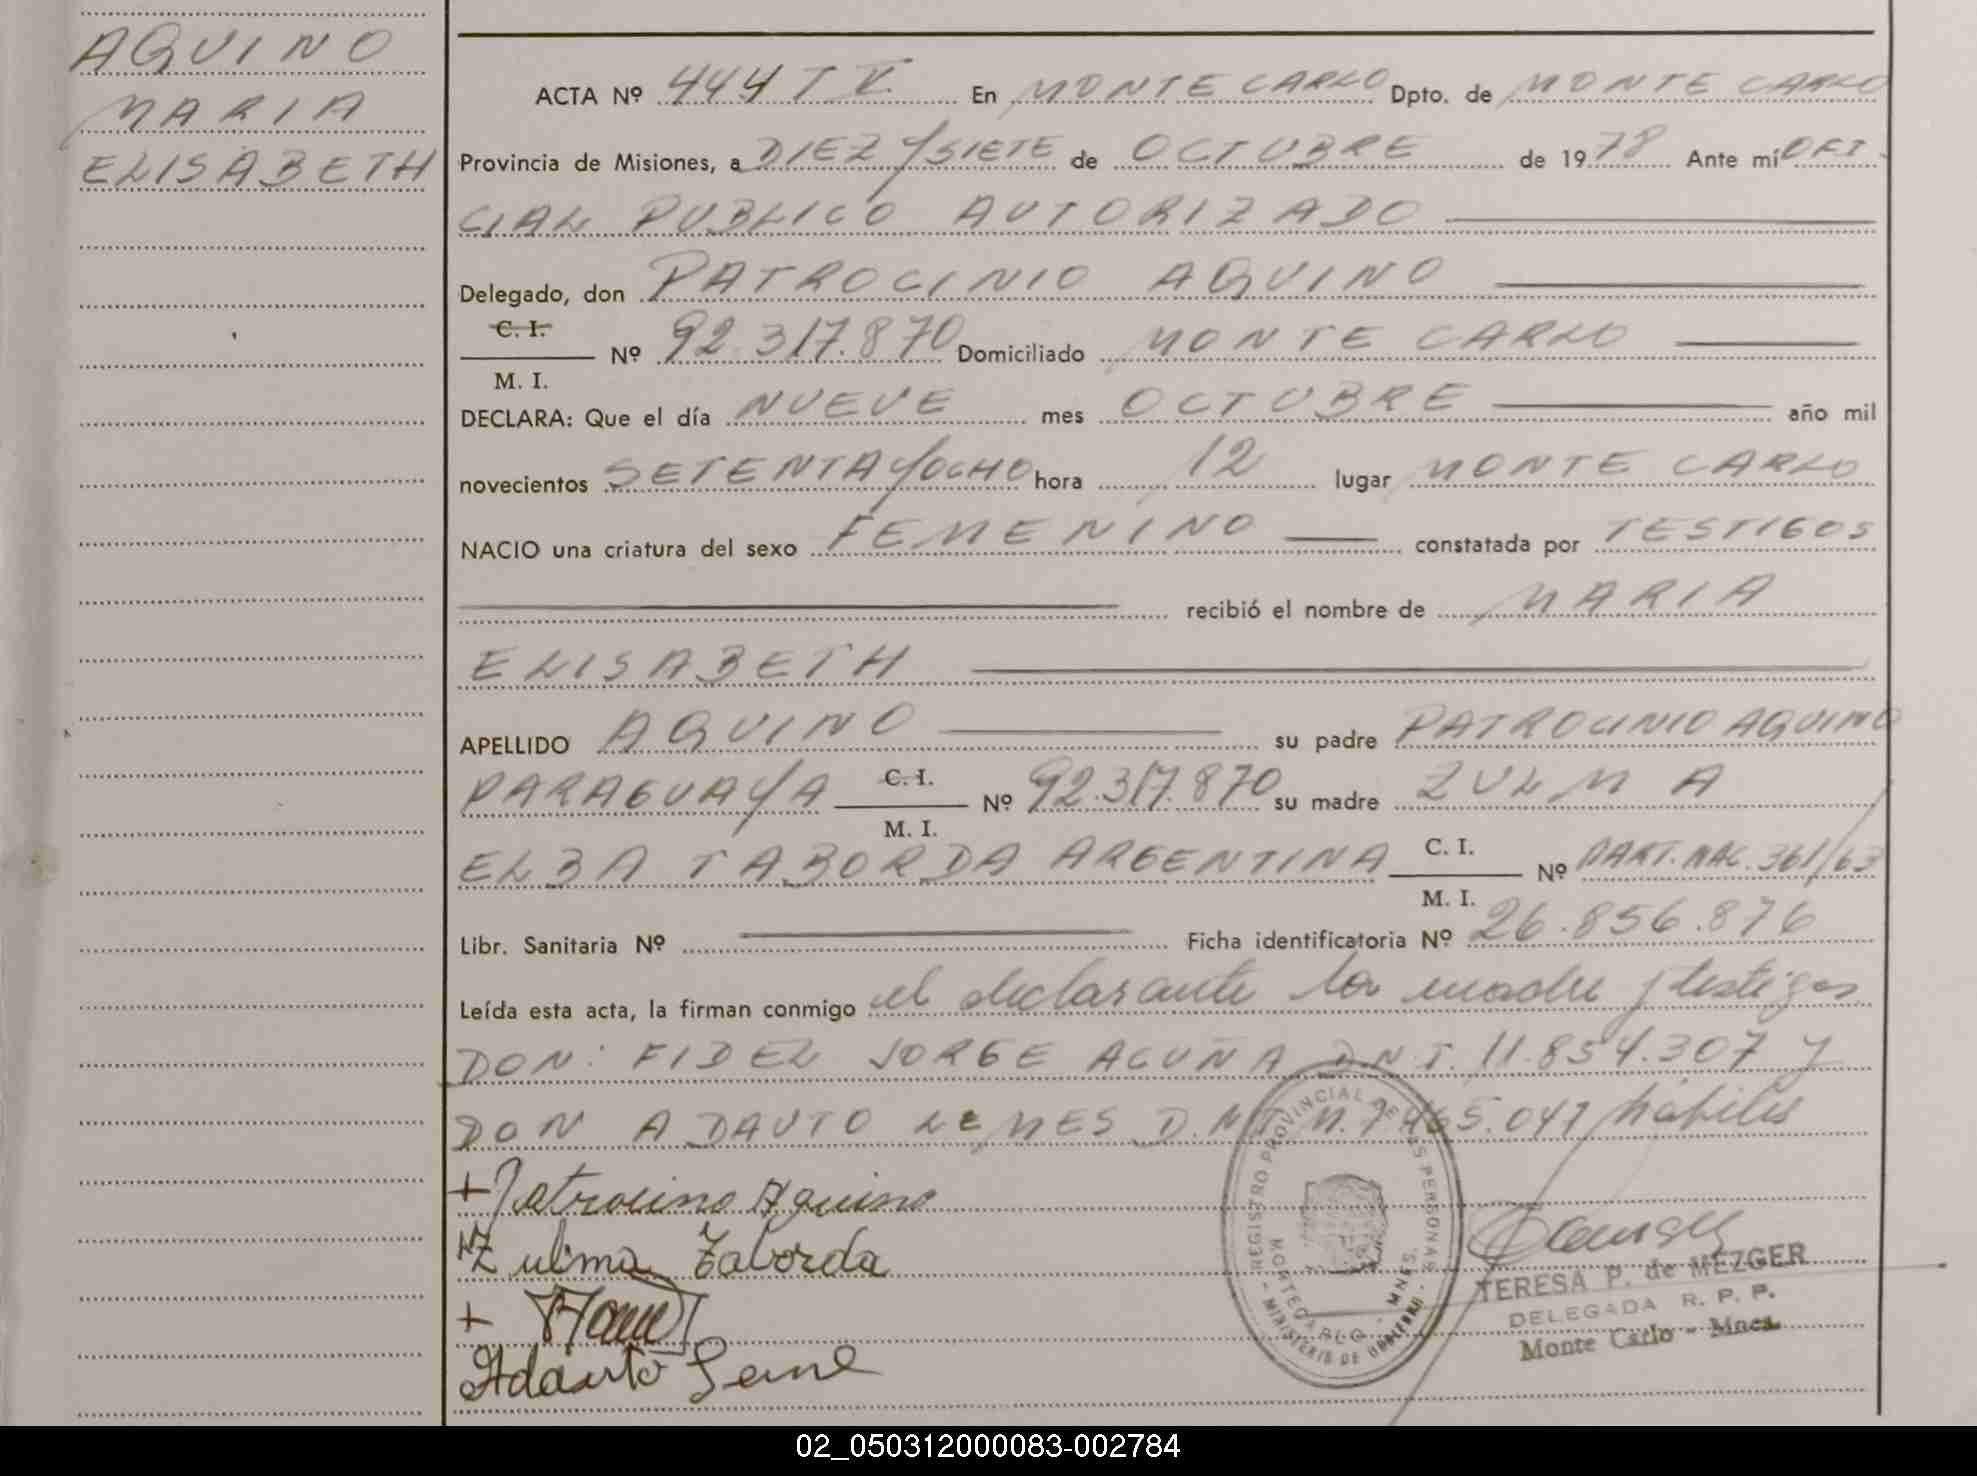 AQUINO
MARIA
ELISABETH
ACTA Nº 444 T V. En MONTE CARLO Dpto. de MONTE CARLO
Provincia de Misiones, a DIEZ Y SIETE de OCTUBRE de 1978 Ante mí OFI
CIAL PUBLICO AUTORIZADO
Delegado, don PATROCINIO AQUINO
C. I.
Nº 92.317.870 Domiciliado MONTE CARLO
M. I.
DECLARA: Que el día NUEVE mes OCTUBRE año mil
novecientos SETENTA Y OCHO hora 12 lugar MONTE CARLO
NACIO una criatura del sexo FEMENINO constatada por TESTIGOS
recibió el nombre de MARIA
ELISABETH
APELLIDO AQUINO su padre PATROCINIO AQUINO
PARAGUAYA C. I. Nº 92.317.870 su madre ZULMA
M. I.
ELBA TABORDA ARGENTINA C. I. Nº PART. NAC. 361/63
M. I.
Libr. Sanitaria Nº Ficha identificatoria Nº 26.856.876
Leída esta acta, la firman conmigo el declarante la madre y testigos
DON: FIDEL JORGE ACUÑA D.N.I. 11.854.307 Y
DON ADAUTO LEMES D.N.I. M. 7.465.047 hábiles
+Patrocino Aquino
Zulma Taborda
+
Adauto Leme
REGISTRO PROVINCIAL DE LAS PERSONAS
MONTECARLO - MNES.
- MINISTERIO DE GOBIERNO -
TERESA P. de MEZGER
DELEGADA R. P. P.
Monte Carlo - Mnes.
02_050312000083-002784